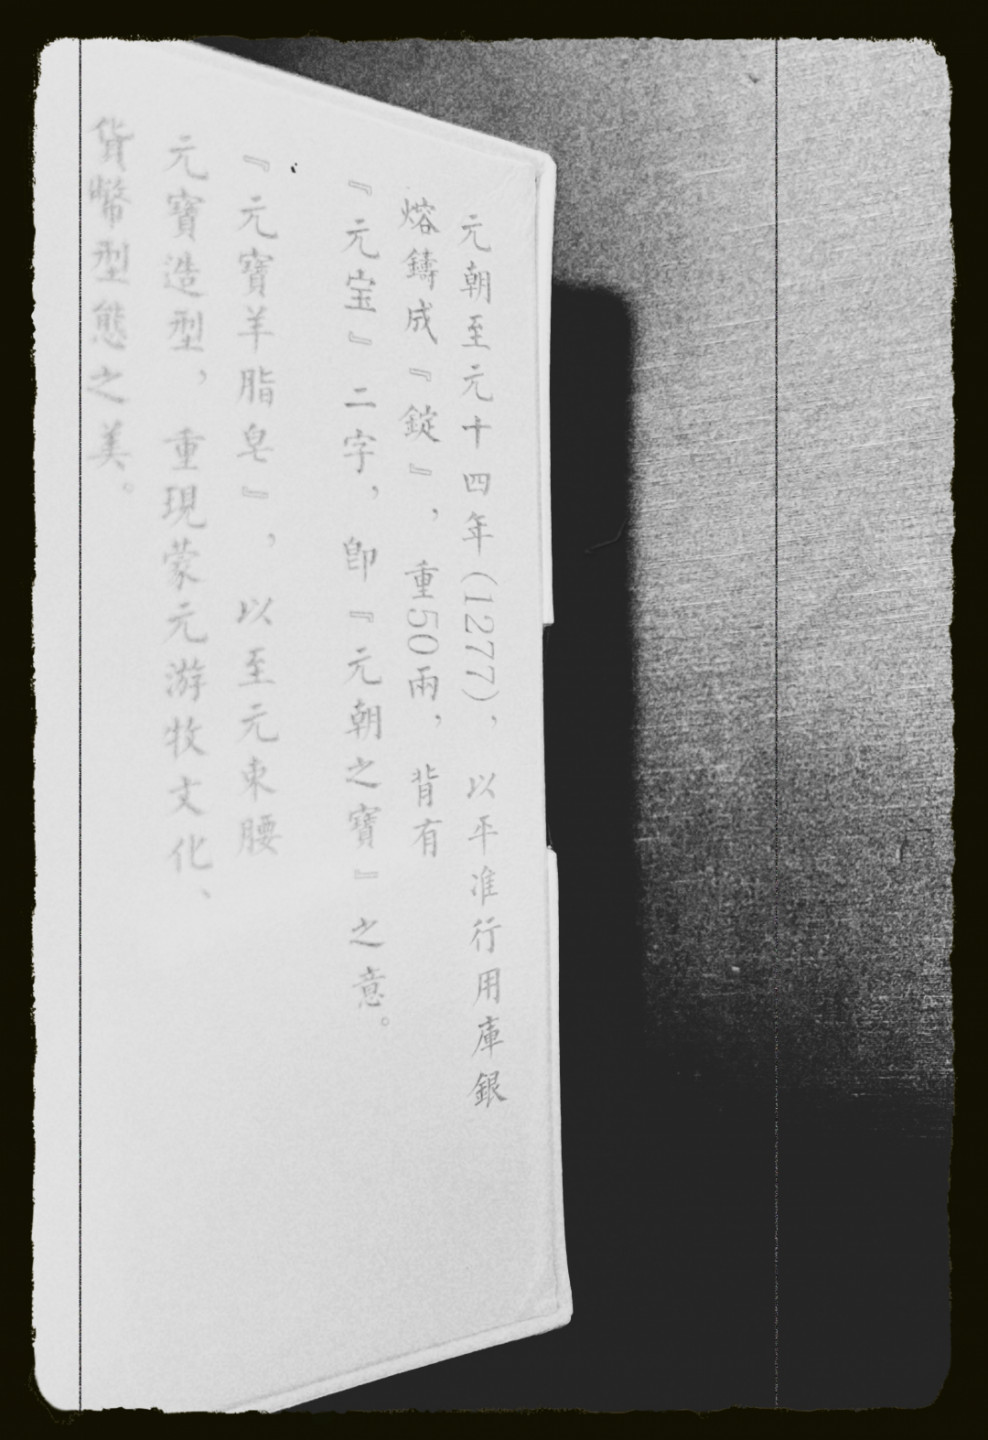 元朝至元十四年(1277)，以平准行用庫銀
熔鑄成『錠』，重50兩，背有
『元宝』二字，即『元朝之寶』之意。
『元寶羊脂皂』，以至元束腰
元寶造型，重現蒙元游牧文化、
貨幣型態之美。